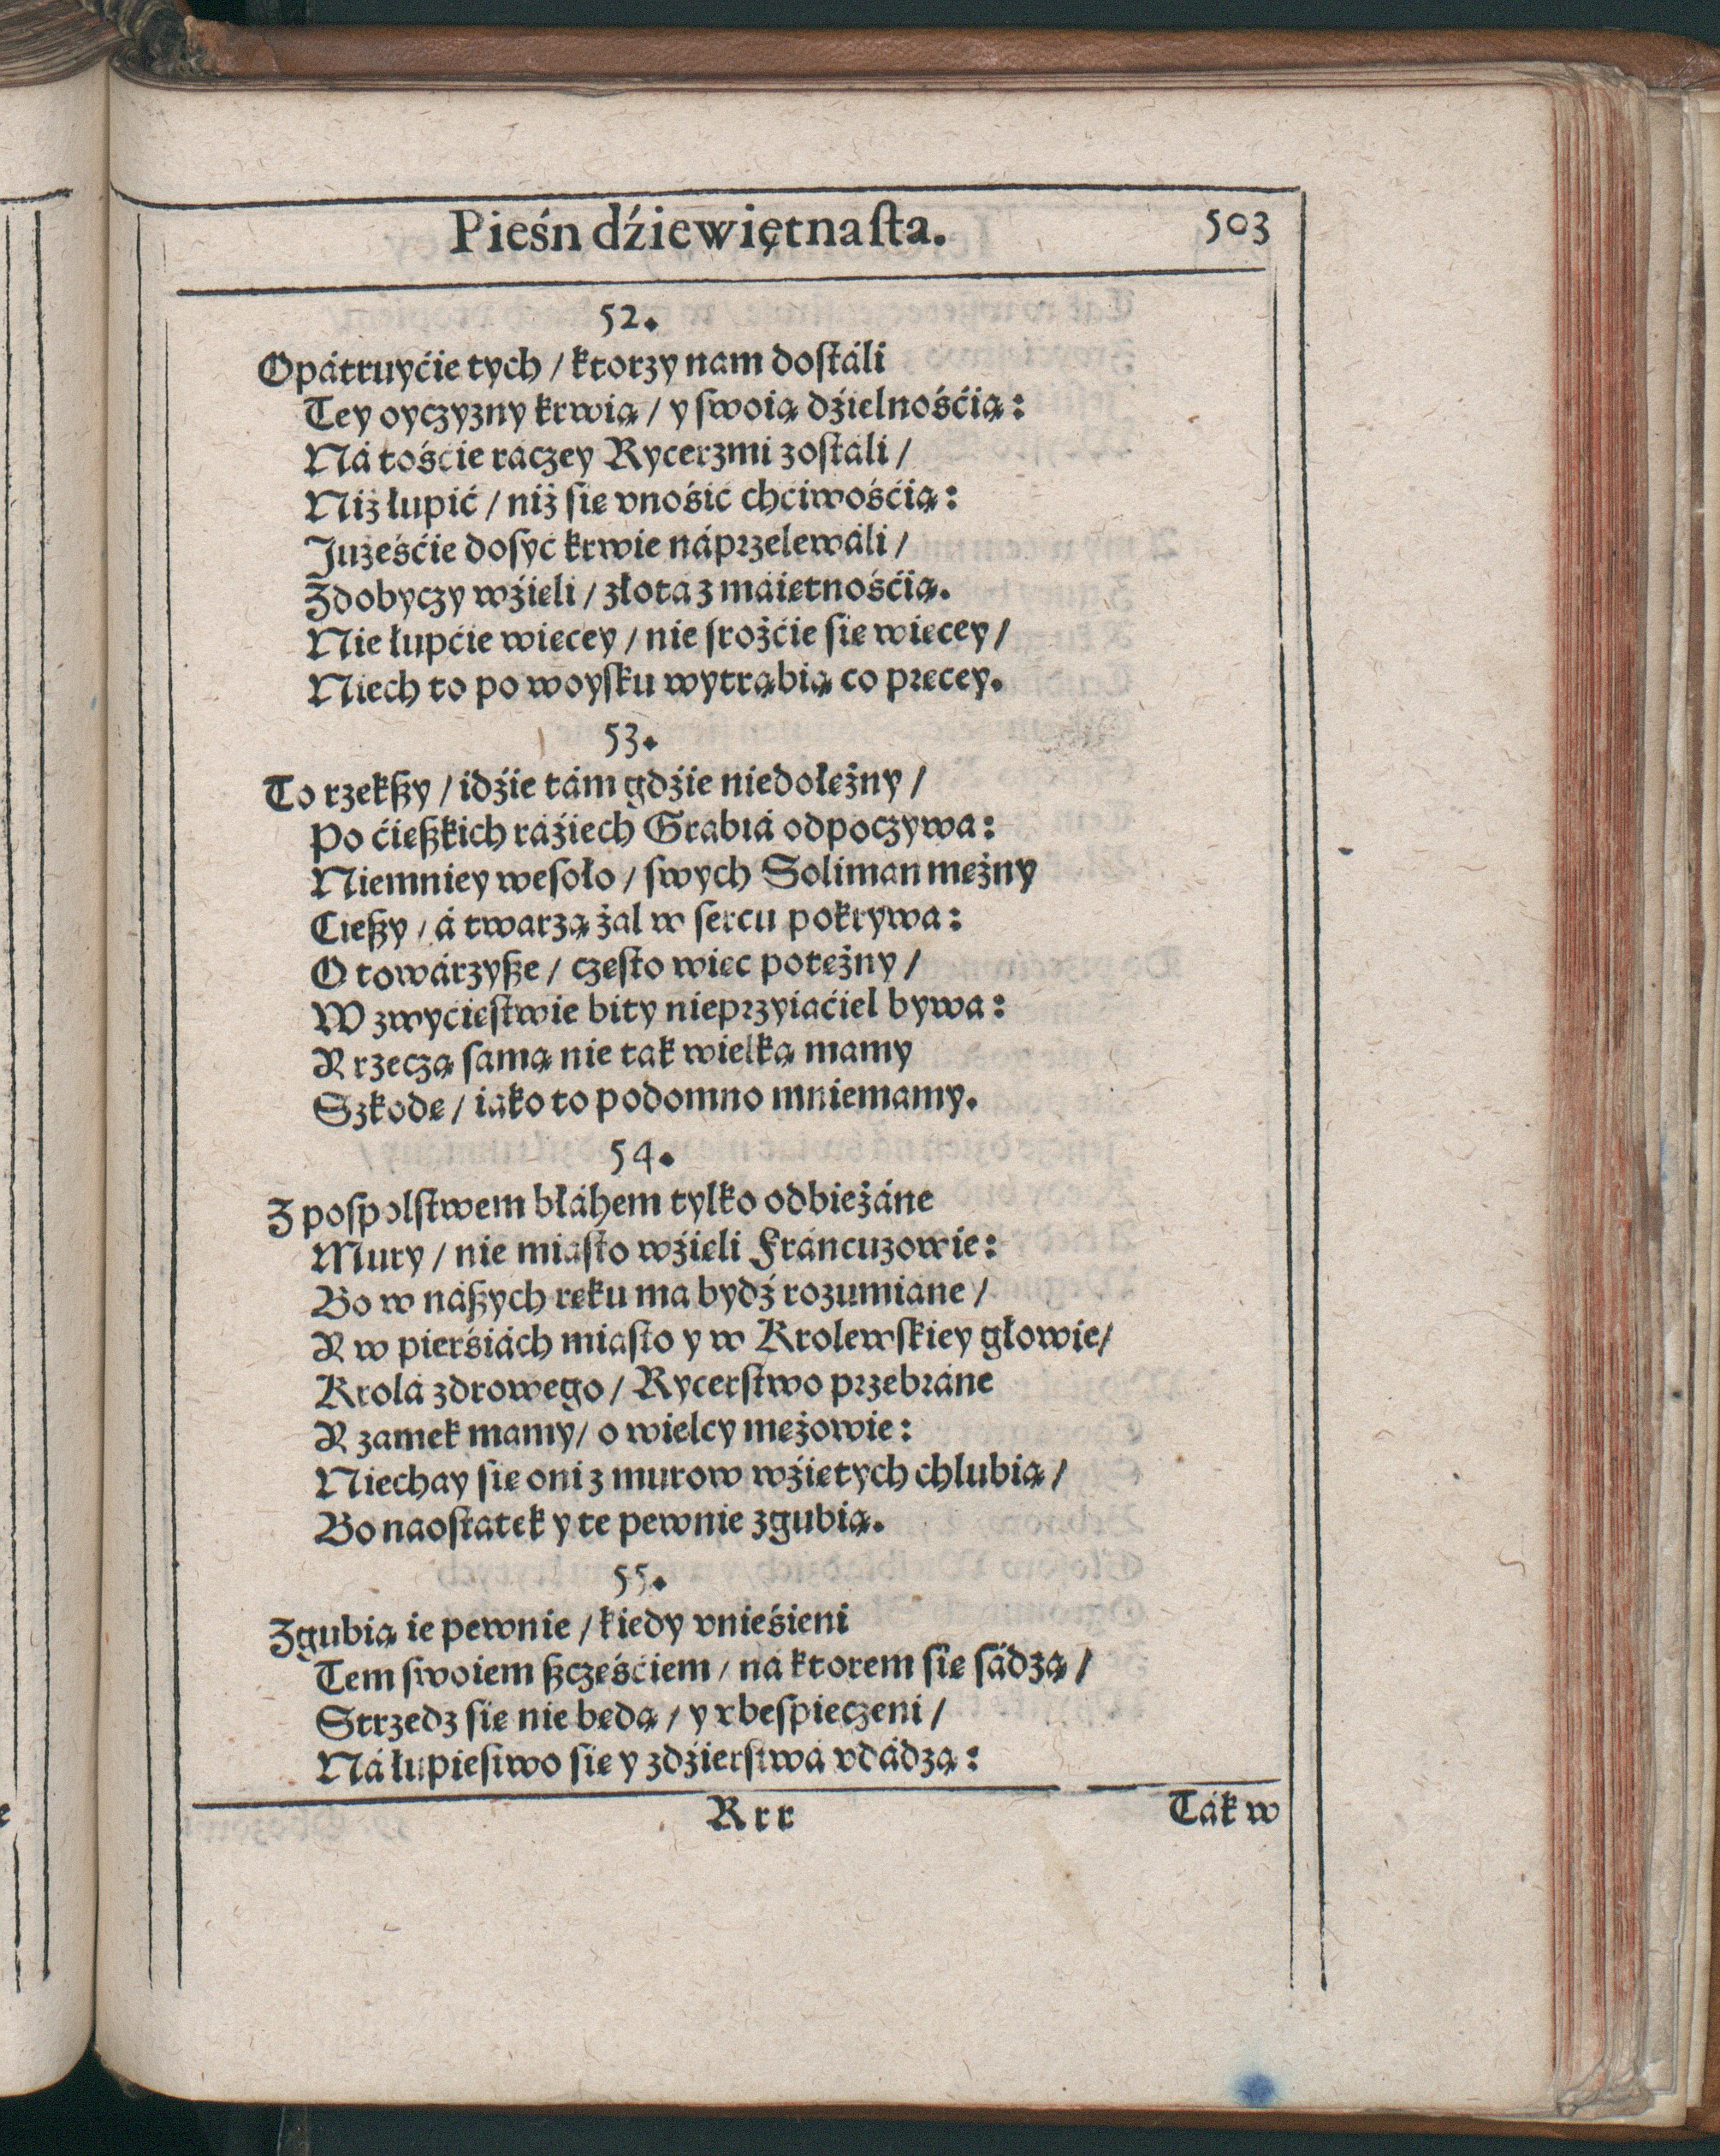 Pieśń dźiewiętnaſta. 503
52.
Opátruyćie tych / ktorzy nam doſtáli
Tey oyczyzny krwią / y ſwoią dźielnośćią:
Ná tośćie ráczey Rycerzmi zoſtáli /
Niż łupić / niż ſię vnośić chćiwośćią:
Jużeśćie doſyć krwie náprzelewáli /
Zdobyczy wźięli / złota z máiętnośćią.
Nie łupćie więcey / nie ſrożćie ſię więcey /
Niech to po woyſku wytrąbią co pręcey.
53.
To rzekſzy / idźie tám gdźie niedołężny /
Po ćięſzkich ráźiech Grabiá odpoczywa:
Niemniey weſoło / ſwych Soliman mężny
Cieſzy / á twarzą żal w ſercu pokrywa:
O towárzyſze / częſto więc potężny /
W zwyćięſtwie bity nieprzyiaćiel bywa:
A rzeczą ſamą nie tak wielką mamy
Szkodę / iáko to podomno mniemamy.
54.
Z poſpolſtwem błáhem tylko odbieżáne
Mury / nie miáſto wźięli Fráncuzowie:
Bo w náſzych ręku ma bydź rozumiane /
A w pierśiách miáſto y w Krolewſkiey głowie/
Krolá zdrowego / Rycerſtwo przebráne
A zamek mamy / o wielcy mężowie:
Niechay ſię oni z murow wźiętych chlubią /
Bo naoſtátek y te pewnie zgubią.
55.
Zgubią ie pewnie / kiedy vnieśieni
Tem ſwoiem ſzczęśćiem / ná ktorem ſię ſádzą /
Strzedz ſię nie będą / y vbeſpieczeni /
Ná łupieſtwo ſię y zdźierſtwá vdádzą:
Rrr Ták w